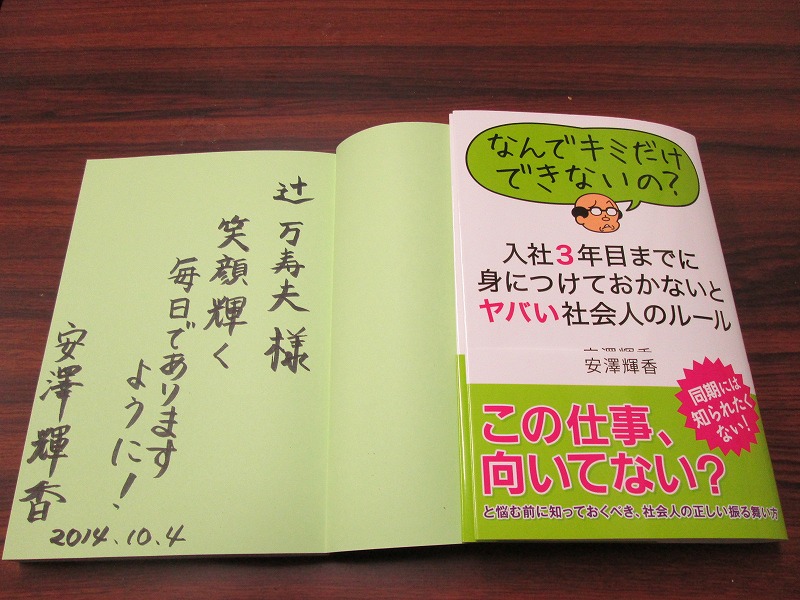 辻 万寿夫 様
笑顔輝く
毎日であります
ように!
安澤輝香
2014.10.4
なんでキミだけ
できないの?
入社3年目までに
身につけておかないと
ヤバい社会人のルール
安澤輝香
安澤輝香
同期には
知られたく
ない!
この仕事、
向いてない?
と悩む前に知っておくべき、社会人の正しい振る舞い方